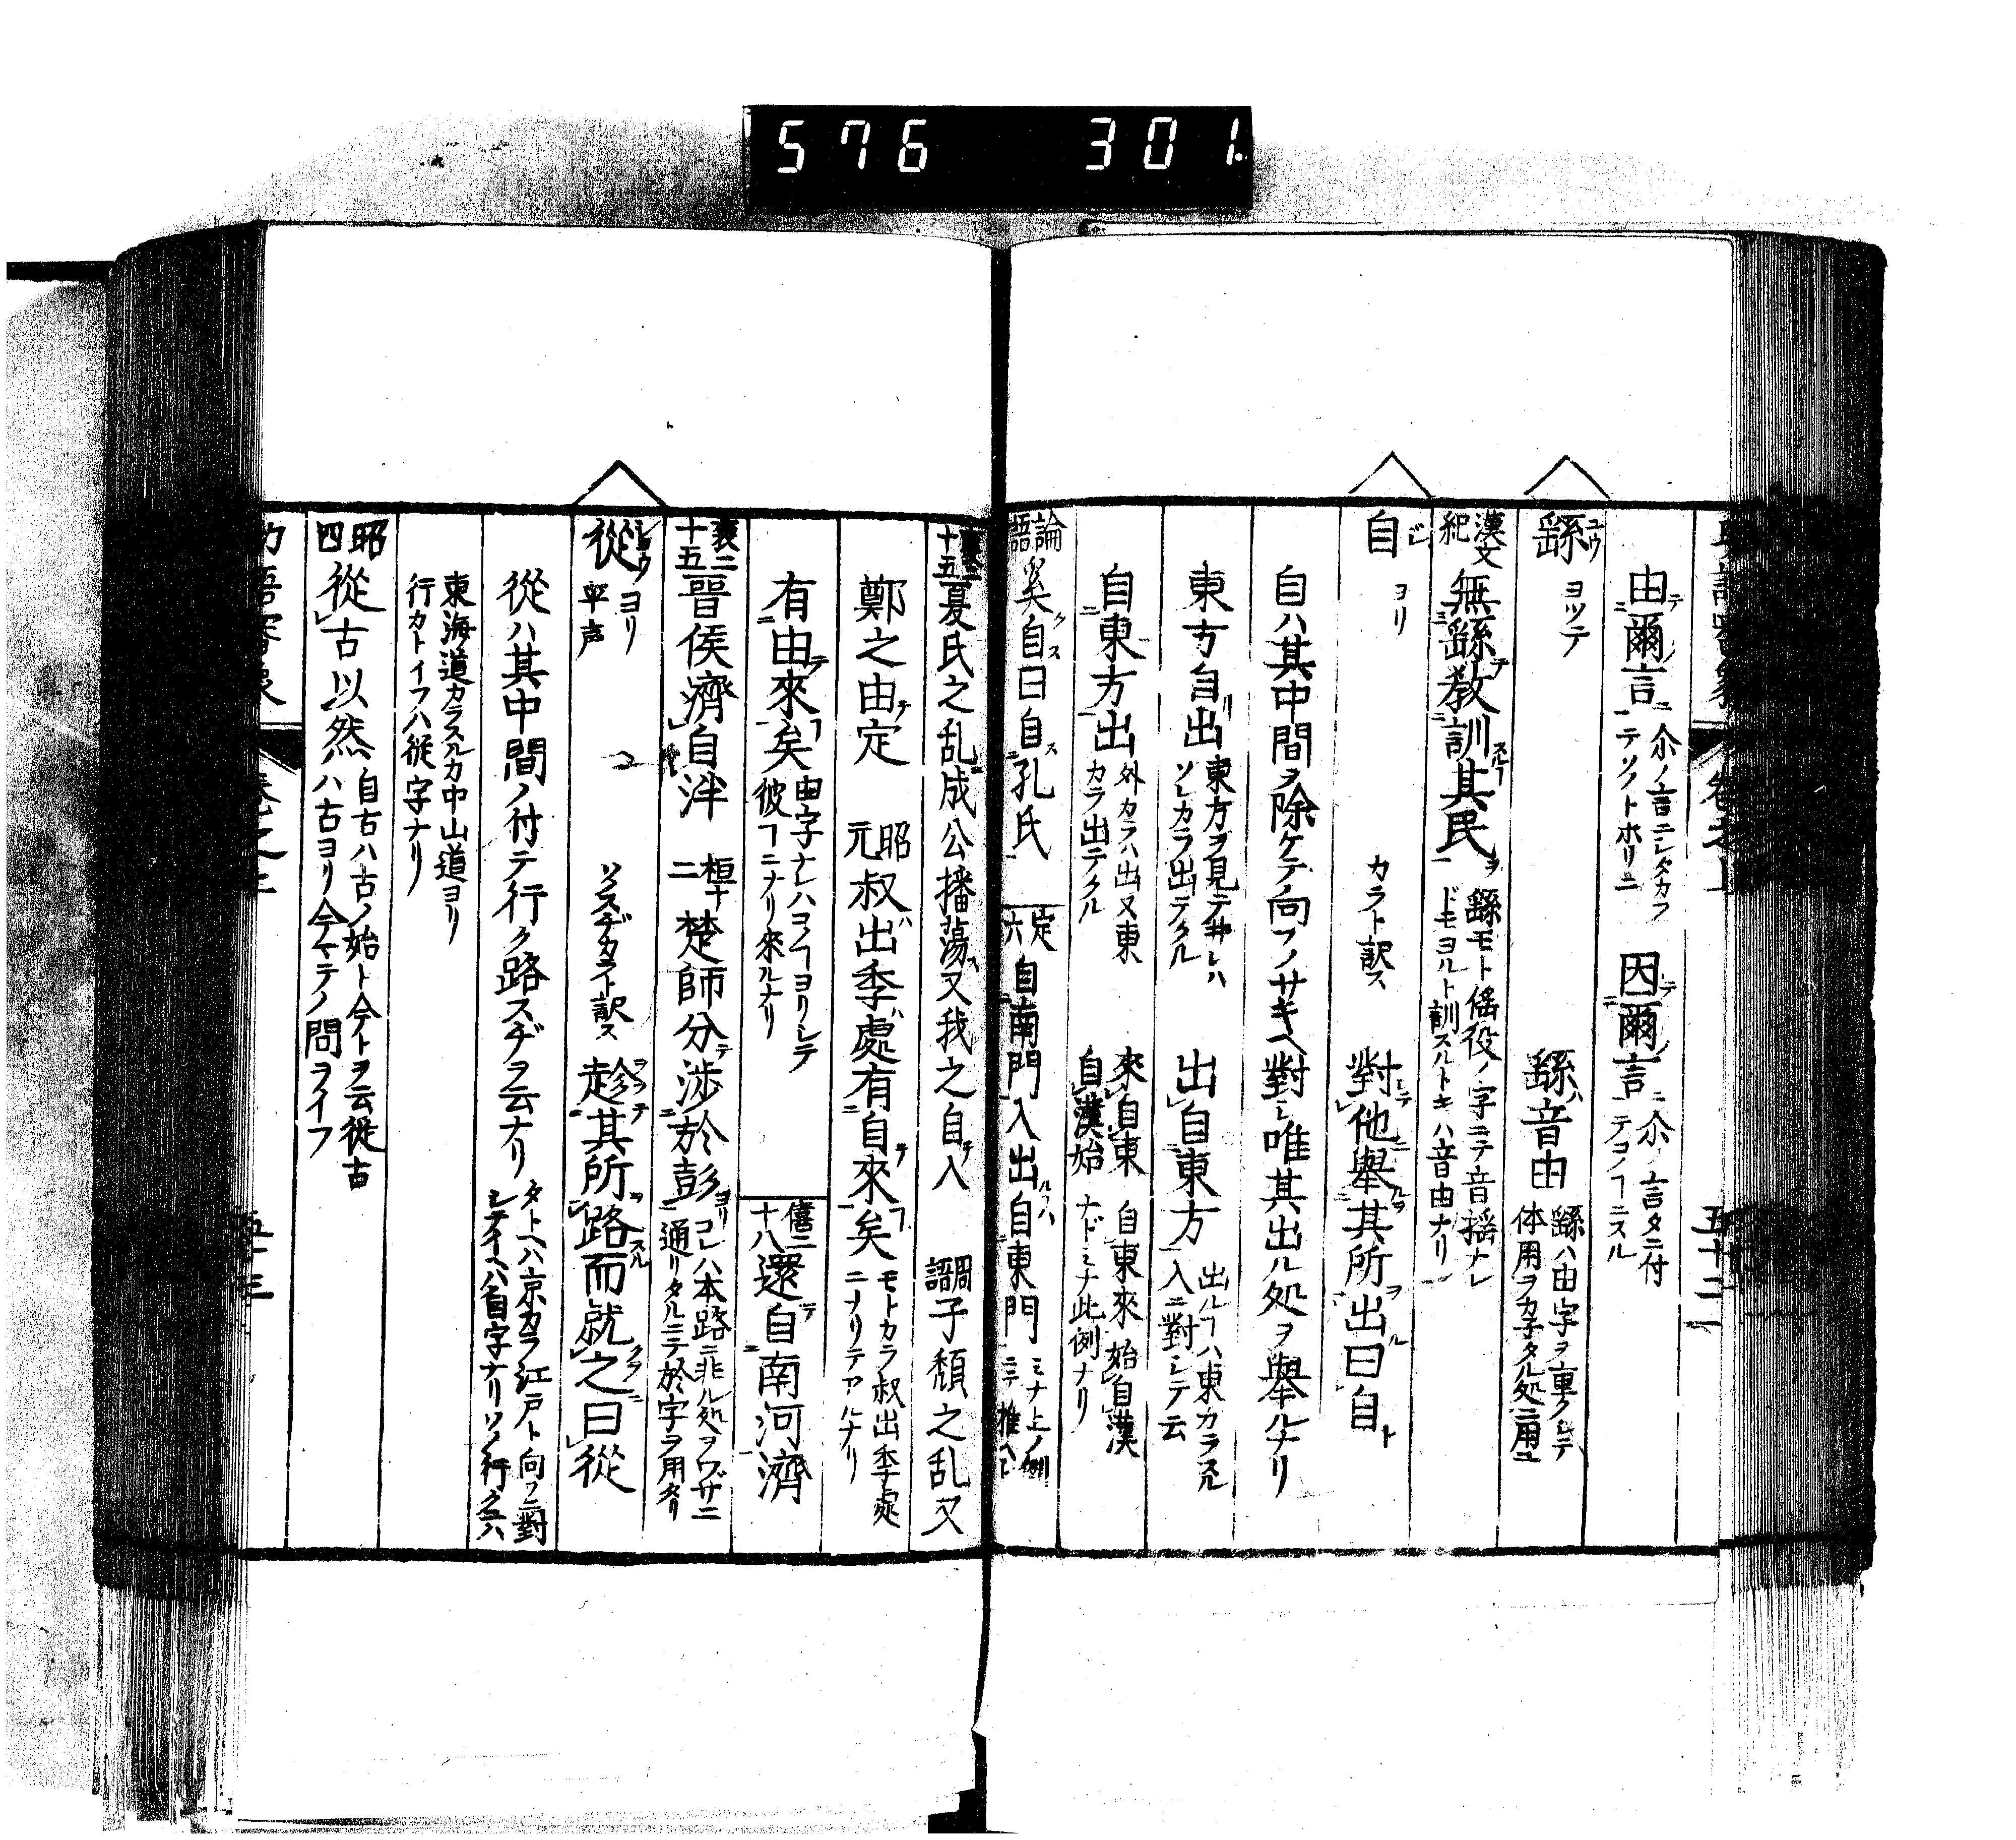 576 301
由爾言 尒ノ言ニシタカフ
テソノトホリニ
因爾言 尒ノ言タニ付
テコノヿニスル
繇 ユウ ヨツテ
繇音由 繇ハ由字ヲ重クシテ
体用ヲカネタル処ニ用ユ
漢文紀 無繇教訓其民 繇モト徭役ノ字ニテ音揺ナレ
ドモヨルト訓スルトキハ音由ナリ
自 ヨリ カラト訳ス 對他舉其所出曰自
自ハ其中間ヲ除ケテ向フノサキヘ對シ唯其出ル処ヲ舉ルナリ
東方自出 東方ヲ見テ井レハ
ソレカラ出テクル
出自東方 出ルヿハ東カラスル
入ニ對シテ云
自東方出 外カラハ出又東
カラ出テクル
來自東 自東來 始自漢
自漢始 ナドミナ此例ナリ
論語 奚自曰自孔氏
定六 自南門入出自東門 ミナ上ノ例
ニテ推ヘシ
十五 夏氏之乱成公播蕩又我之自入 周語 子頹之乱又
鄭之由定 昭元 叔出季處有自來矣 モトカラ叔出季處
ニナリテアルナリ
有由來矣 由字ナレハヨノヿヨリシテ
彼ヿニナリ來ルナリ
僖二十八 還自南河濟
襄二十五 晉侯濟自泮
桓十二 楚師分涉於彭 コレハ本路ニ非ル処ヲワザニ
通リタルニテ於字ヲ用タリ
從 ヨリ 平声 ソノスヂカラト訳ス 趁其所路而就之曰從
從ハ其中間ノ付テ行ク路スヂヲ云ナリ タトヘハ京カラ江戸ト向フニ對
シテイヘハ自字ナリソノ行クニハ
東海道カラスルカ中山道ヨリ
行カトイフハ從字ナリ
昭四 從古以然 自古ハ古ノ始ト今トヲ云從古
ハ古ヨリ今マテノ間ヲイフ